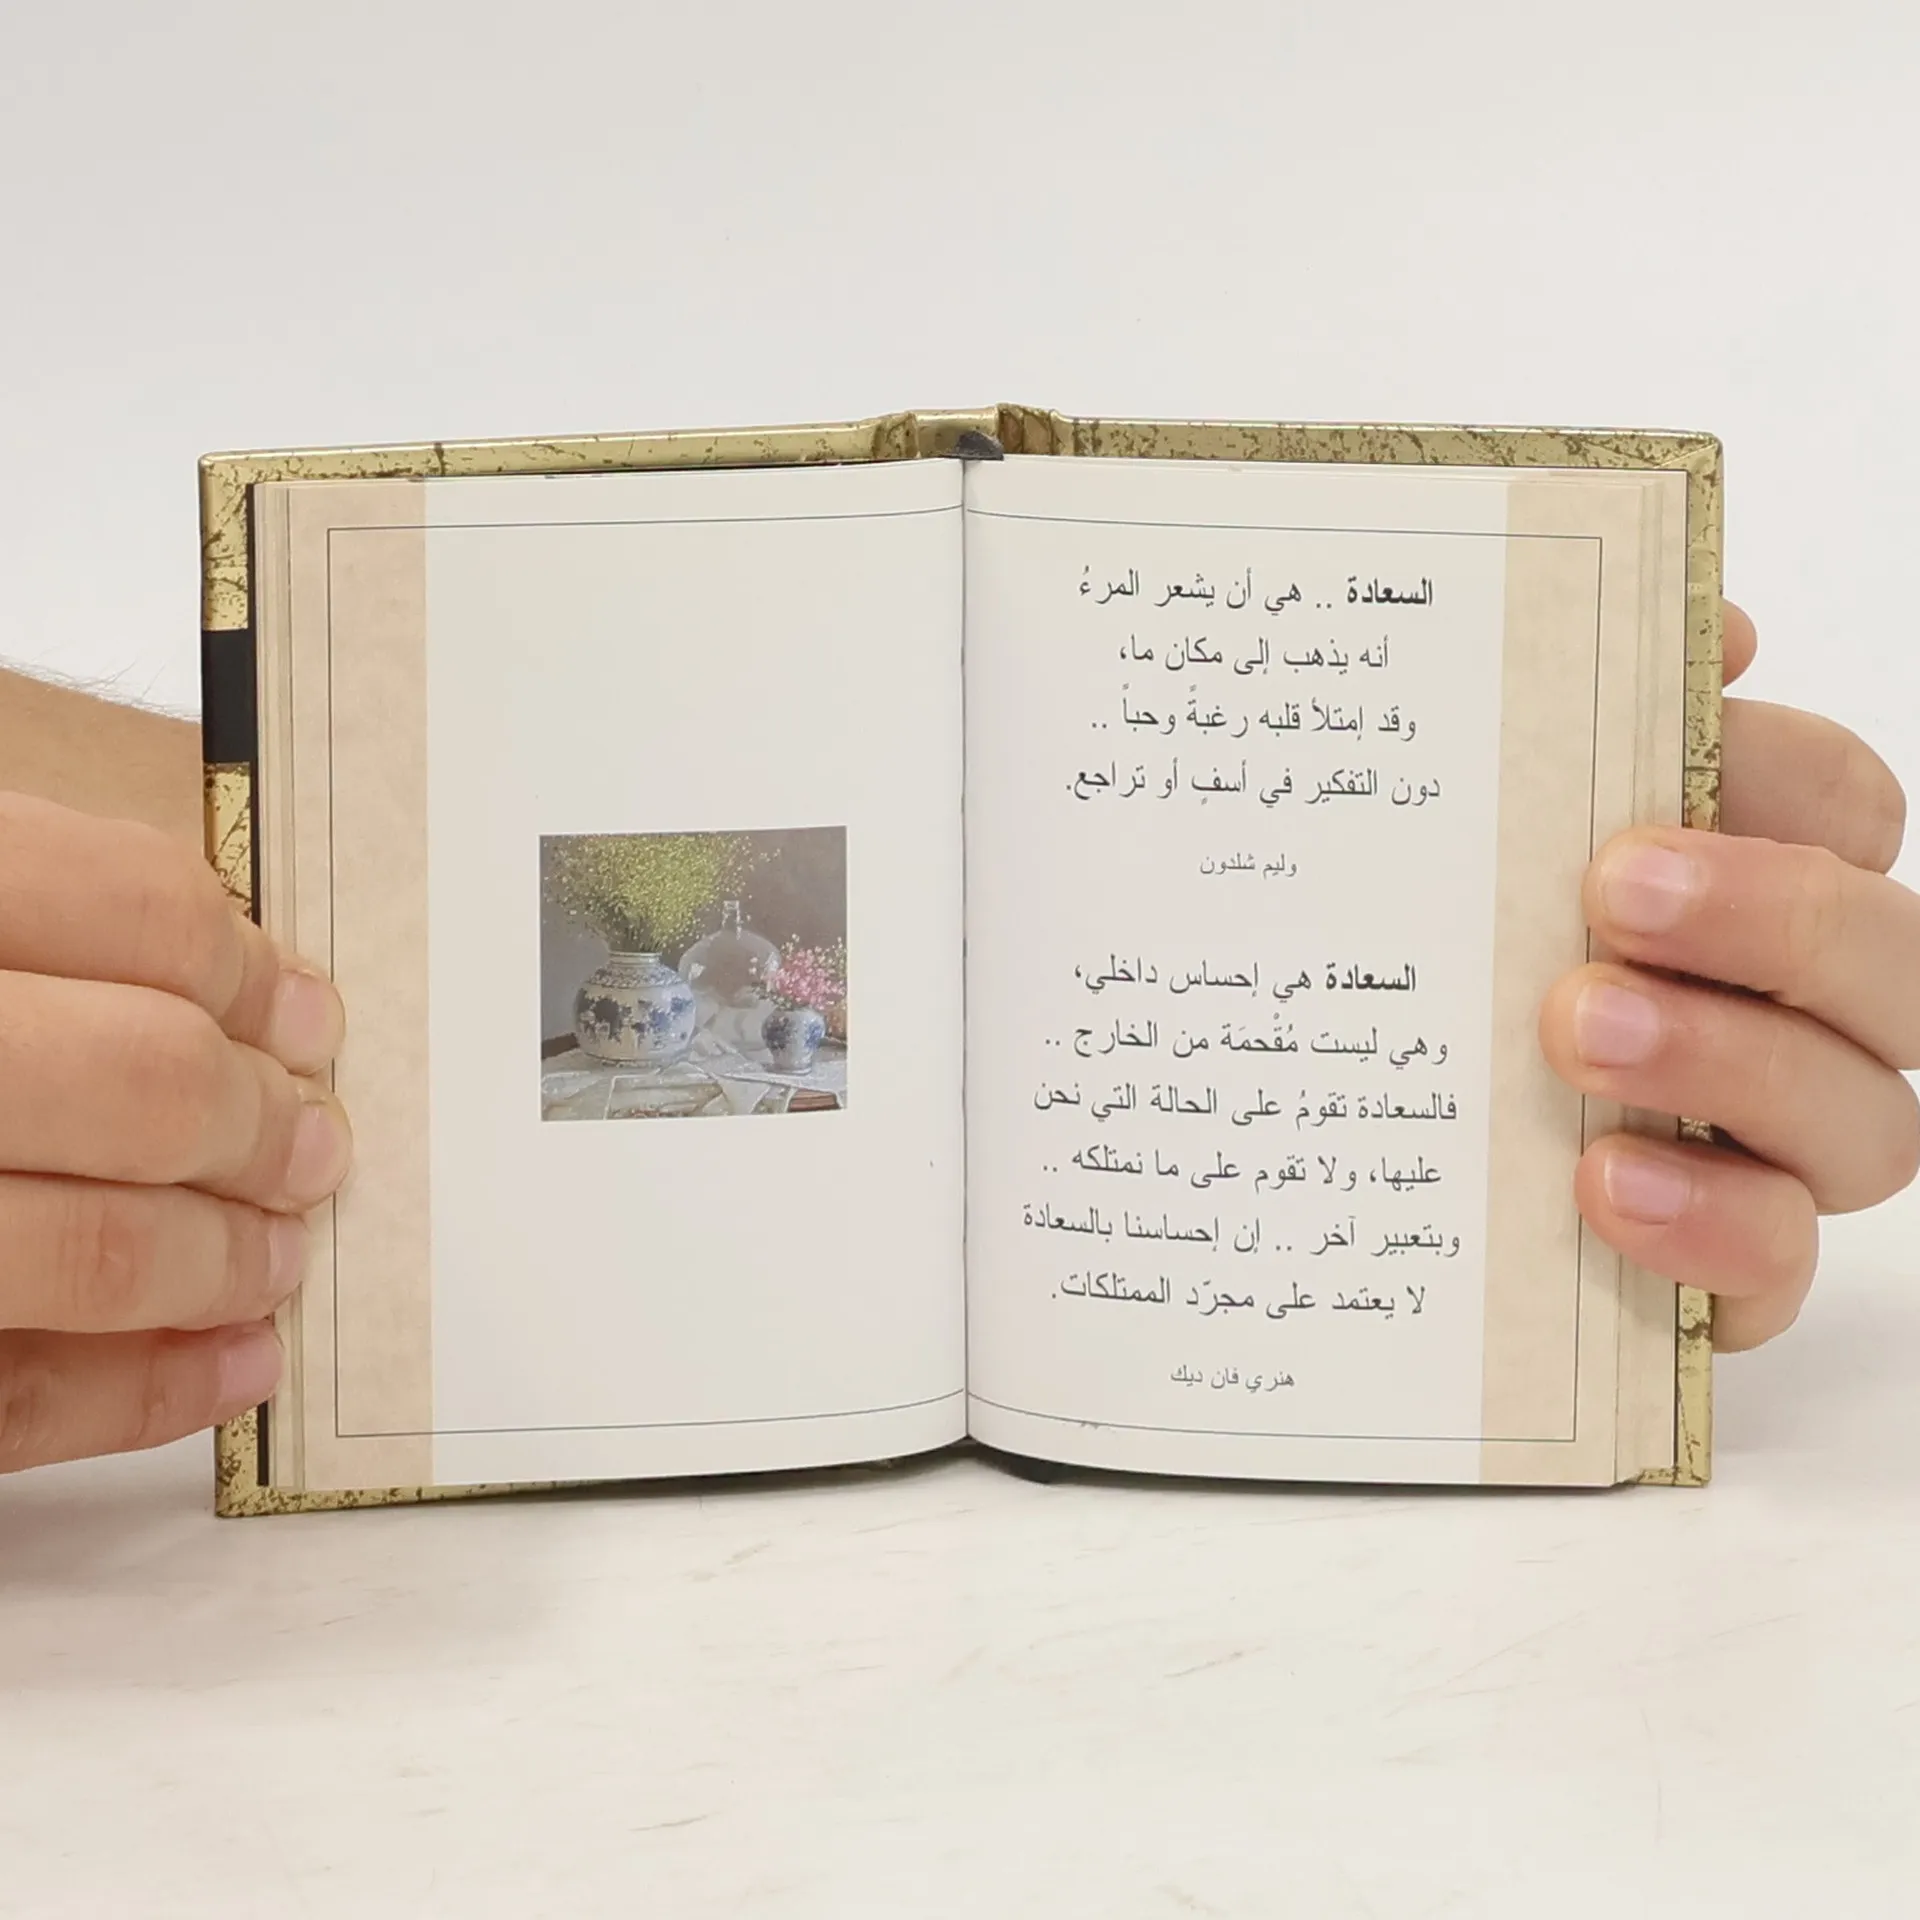 السعادة .. هي أن يشعر المرءُ
أنه يذهب إلى مكان ما،
وقد إمتلأ قلبه رغبةً وحباً ..
دون التفكير في أسفٍ أو تراجع.
وليم شلدون
السعادة هي إحساس داخلي،
وهي ليست مُقْحمَة من الخارج ..
فالسعادة تقومُ على الحالة التي نحن
عليها، ولا تقوم على ما نمتلكه ..
وبتعبير آخر .. إن إحساسنا بالسعادة
لا يعتمد على مجرّد الممتلكات.
هنري فان ديك